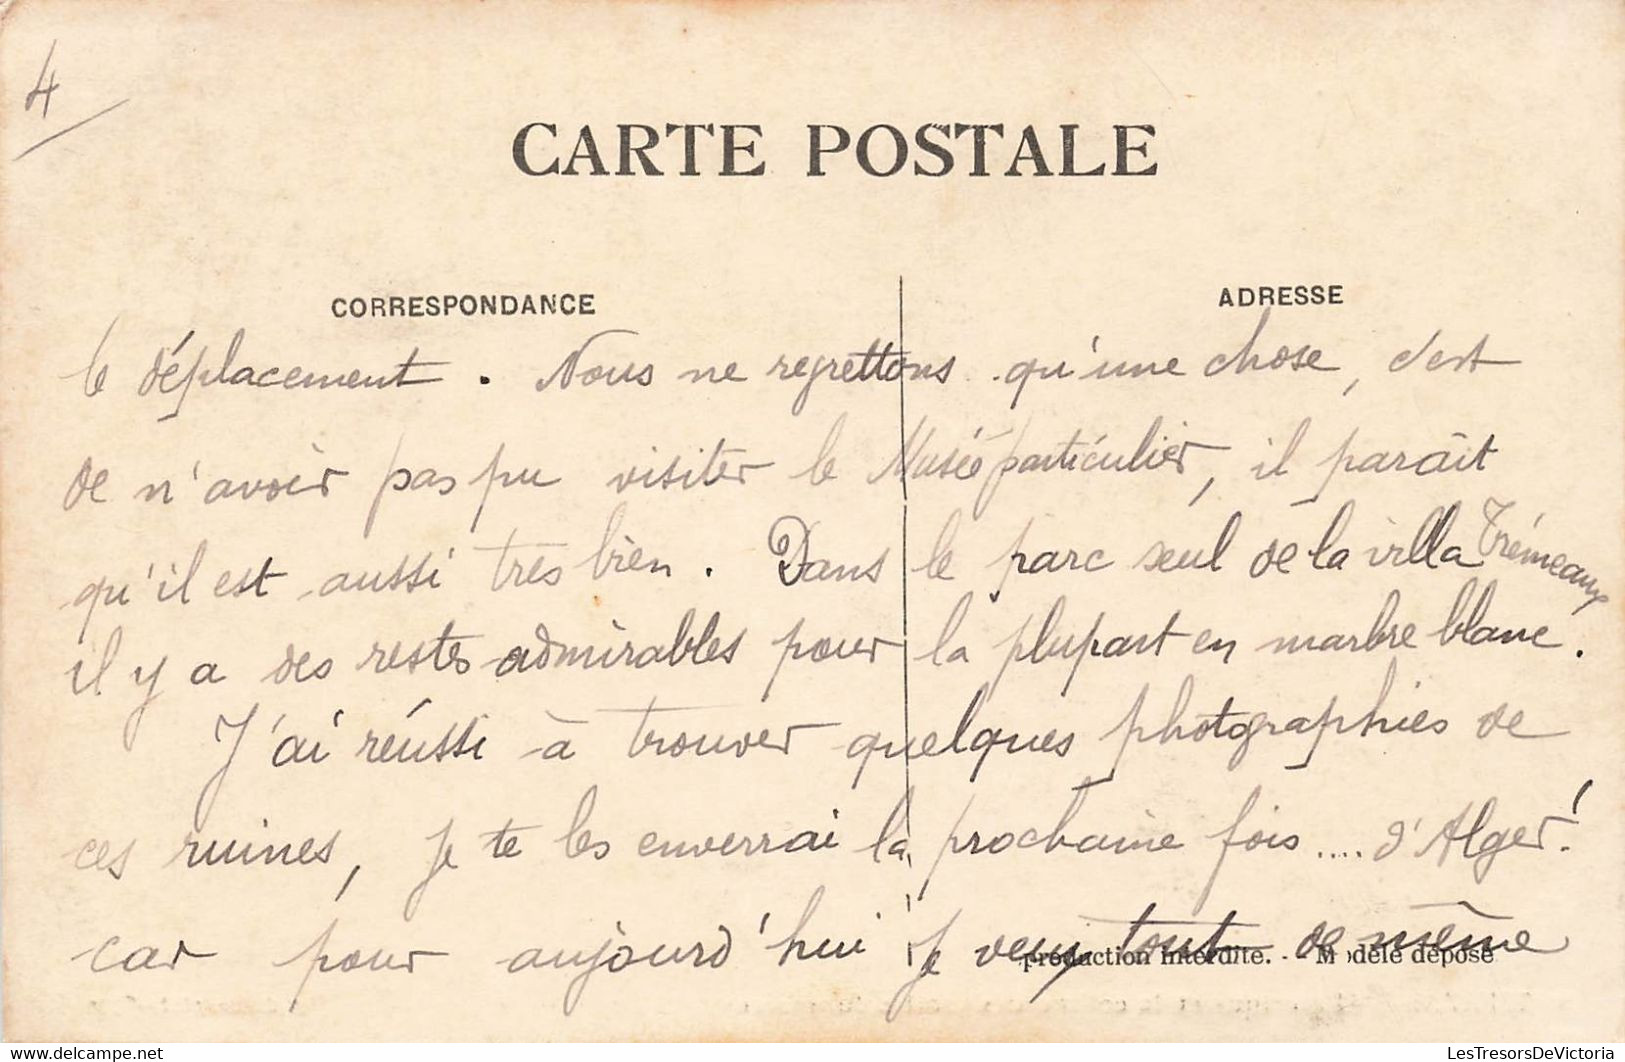 4
CARTE POSTALE
CORRESPONDANCE
ADRESSE
le déplacement. Nous ne regrettons qu'une chose, c'est
de n'avoir pas pu visiter le Musée particulier, il paraît
qu'il est aussi très bien. Dans le parc seul de la villa Trémeaux
il y a des restes admirables pour la plupart en marbre blanc.
J'ai réussi à trouver quelques photographies de
ces ruines, je te les enverrai la prochaine fois.... d'Alger!
car pour aujourd'hui je veux tout de même
production interdite. - Modèle déposé
delcampe.net
LesTresorsDeVictoria